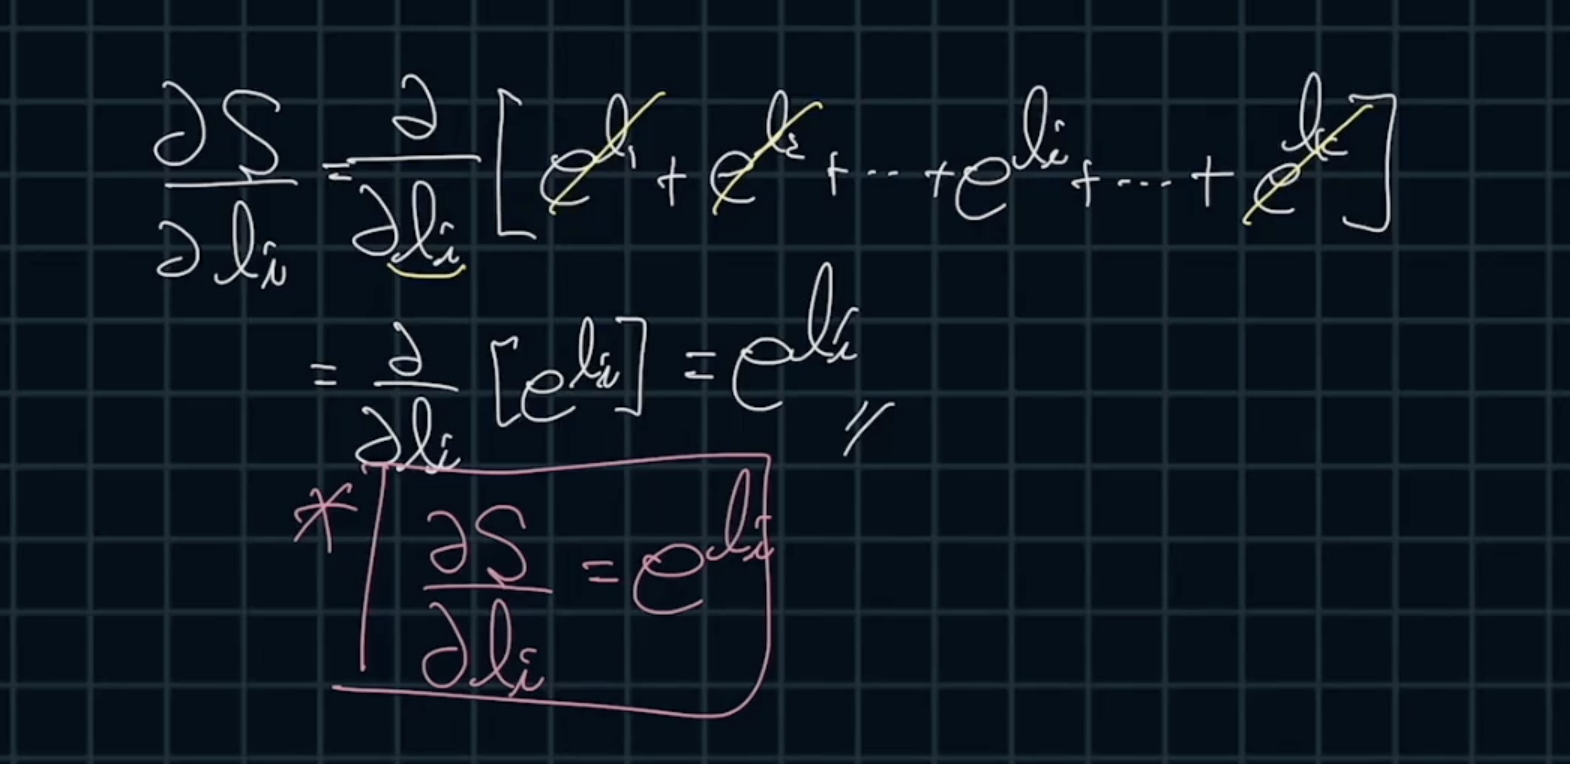 ∂S/∂l_i = ∂/∂l_i [e^{l_1} + e^{l_2} + ... + e^{l_i} + ... + e^{l_c}]
= ∂/∂l_i [e^{l_i}] = e^{l_i} //
* ∂S/∂l_i = e^{l_i}